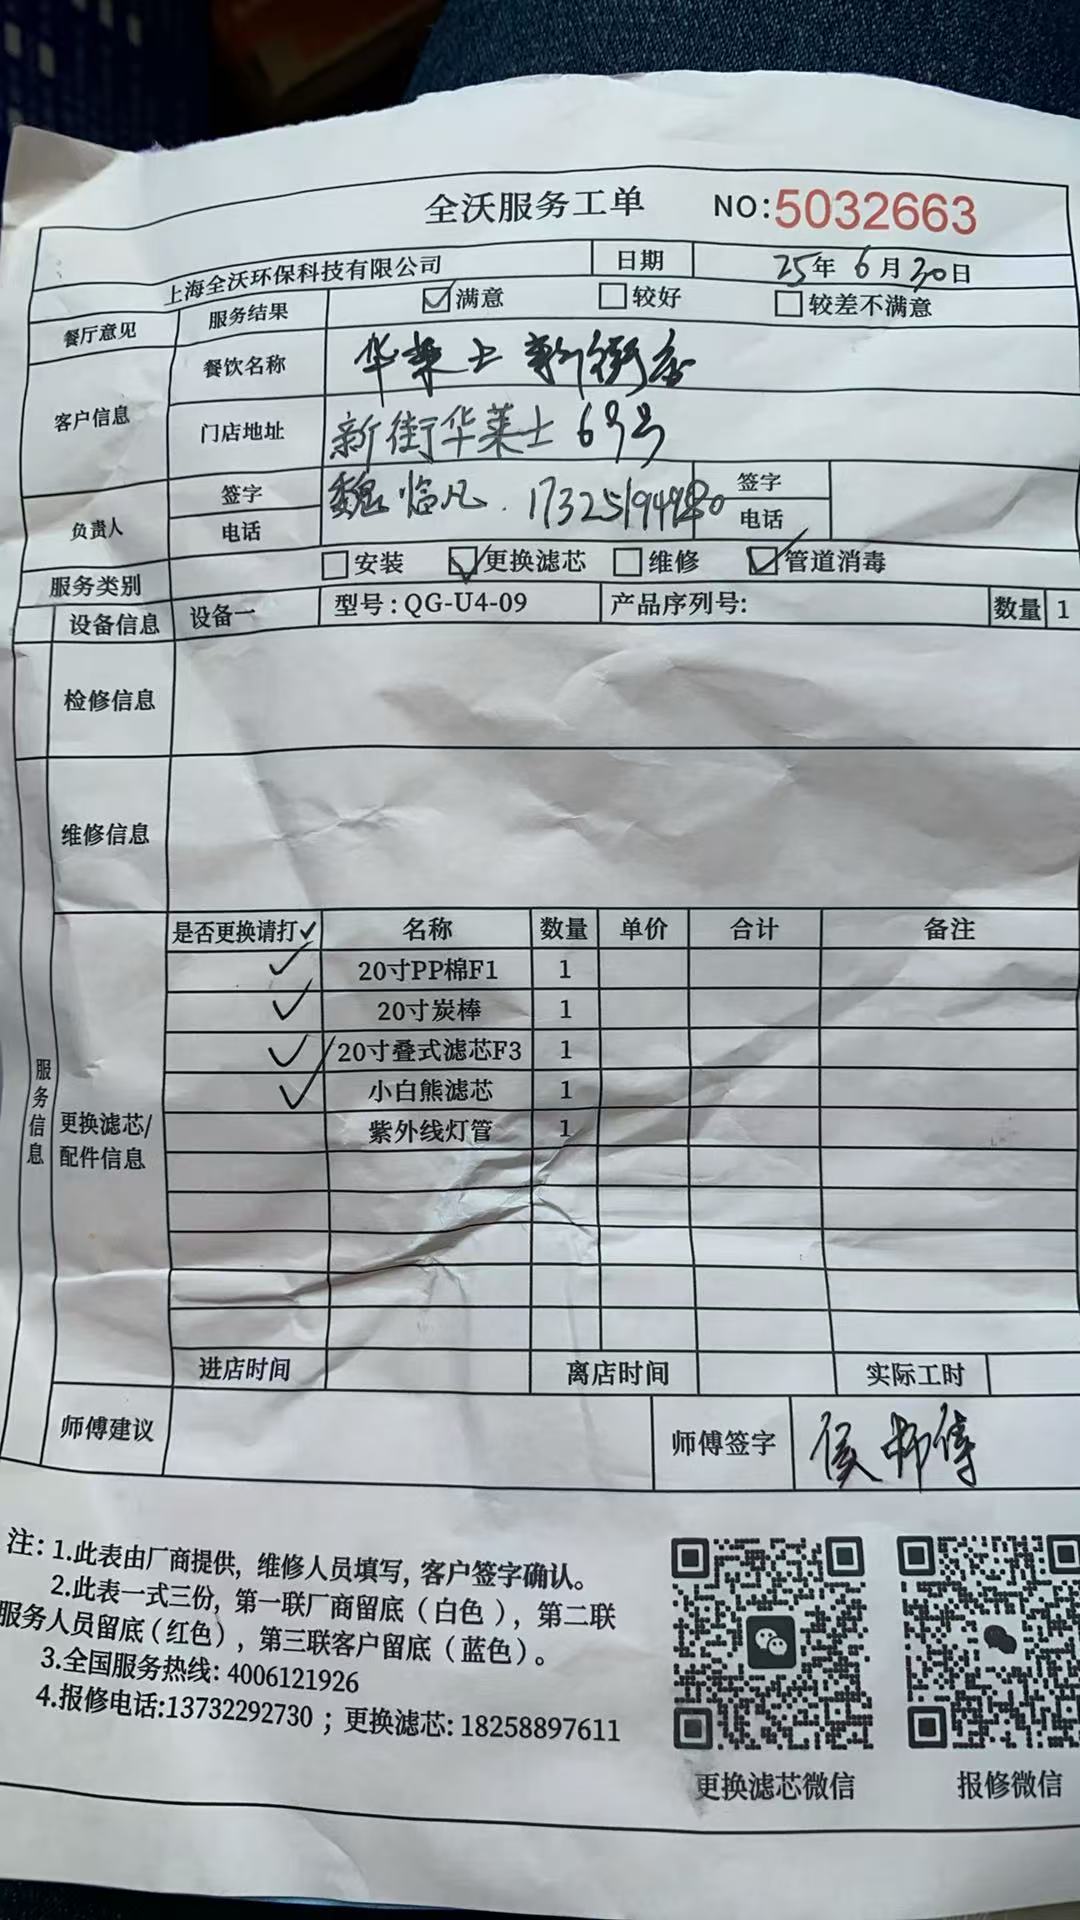 全沃服务工单 NO:5032663
上海全沃环保科技有限公司 日期 25年6月30日
餐厅意见 服务结果 ☑满意 □较好 □较差不满意
客户信息 餐饮名称 华莱士新街店
门店地址 新街华莱士69号
负责人 签字 魏临凡 签字
电话 电话
服务类别 □安装 ☑更换滤芯 □维修 ☑管道消毒
设备信息 设备一 型号:QG-U4-09 产品序列号: 数量 1
检修信息
维修信息
服务信息
更换滤芯/配件信息
是否更换请打✓ 名称 数量 单价 合计 备注
✓ 20寸PP棉F1 1
✓ 20寸炭棒 1
✓ 20寸叠式滤芯F3 1
✓ 小白熊滤芯 1
紫外线灯管 1
进店时间 离店时间 实际工时
师傅建议 师傅签字 侯师傅
注: 1.此表由厂商提供, 维修人员填写, 客户签字确认。
2.此表一式三份, 第一联厂商留底(白色), 第二联
服务人员留底(红色), 第三联客户留底(蓝色)。
3.全国服务热线: 4006121926
4.报修电话:13732292730 ; 更换滤芯: 18258897611
更换滤芯微信 报修微信